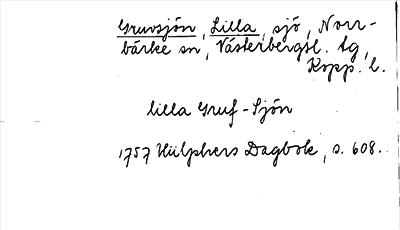 Gruvsjön, Lilla, sjö, Norr-
bärke sn, Västerbergsl. tg,
Kopp. l.
lilla Gruf-Sjön
1757 Hülphers Dagbok, s. 608.